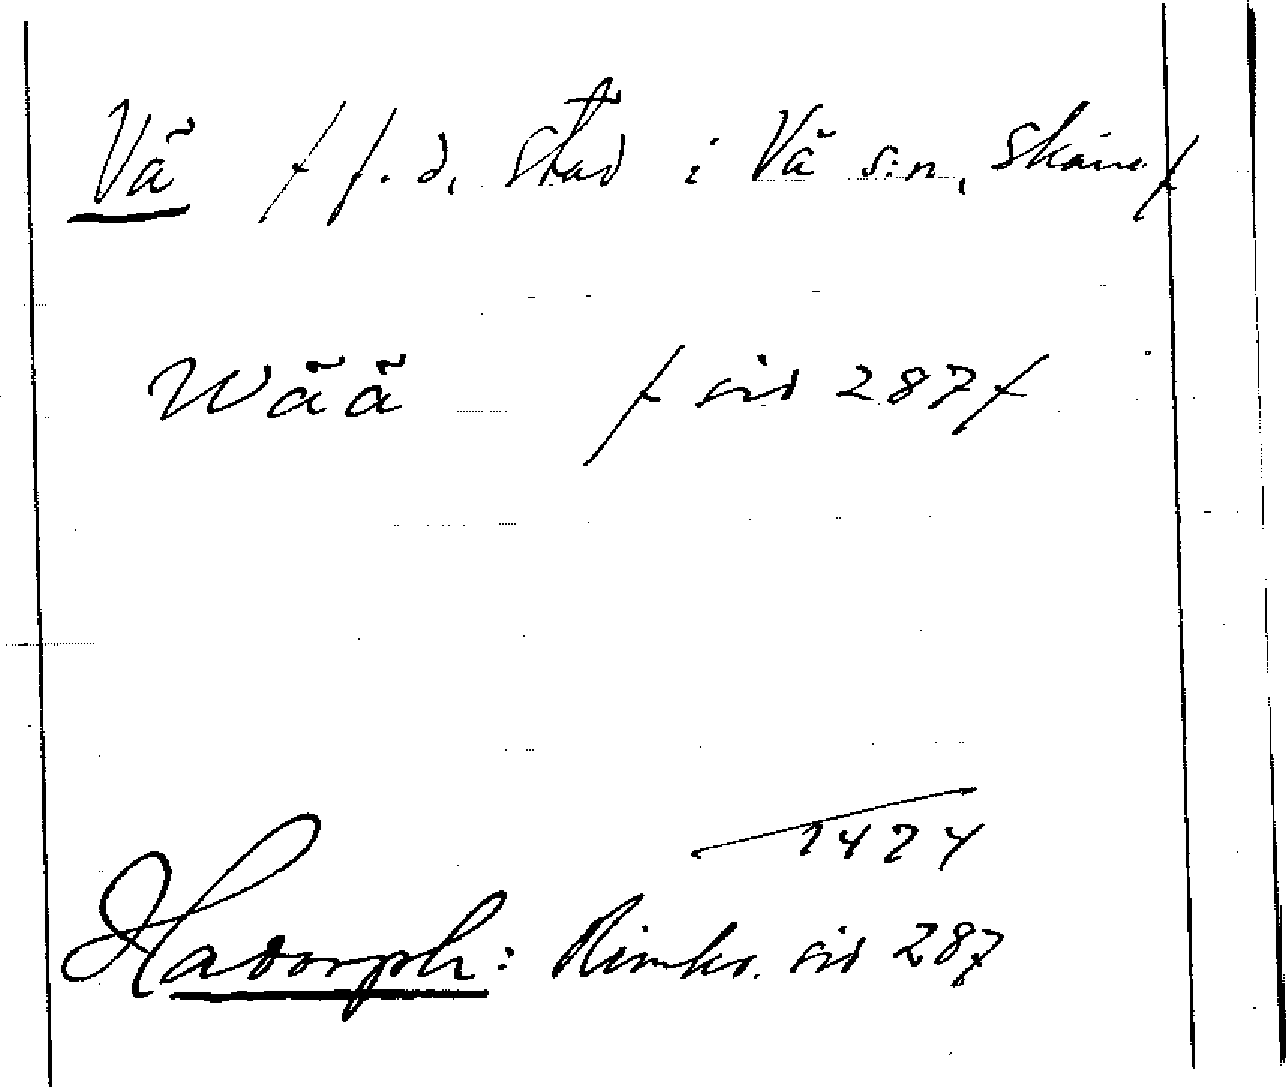 Vä / f.d. stad i Vä s:n, Skåne /
Wää / sid 287 /
1424
Hadorph: Rimkr. sid 287